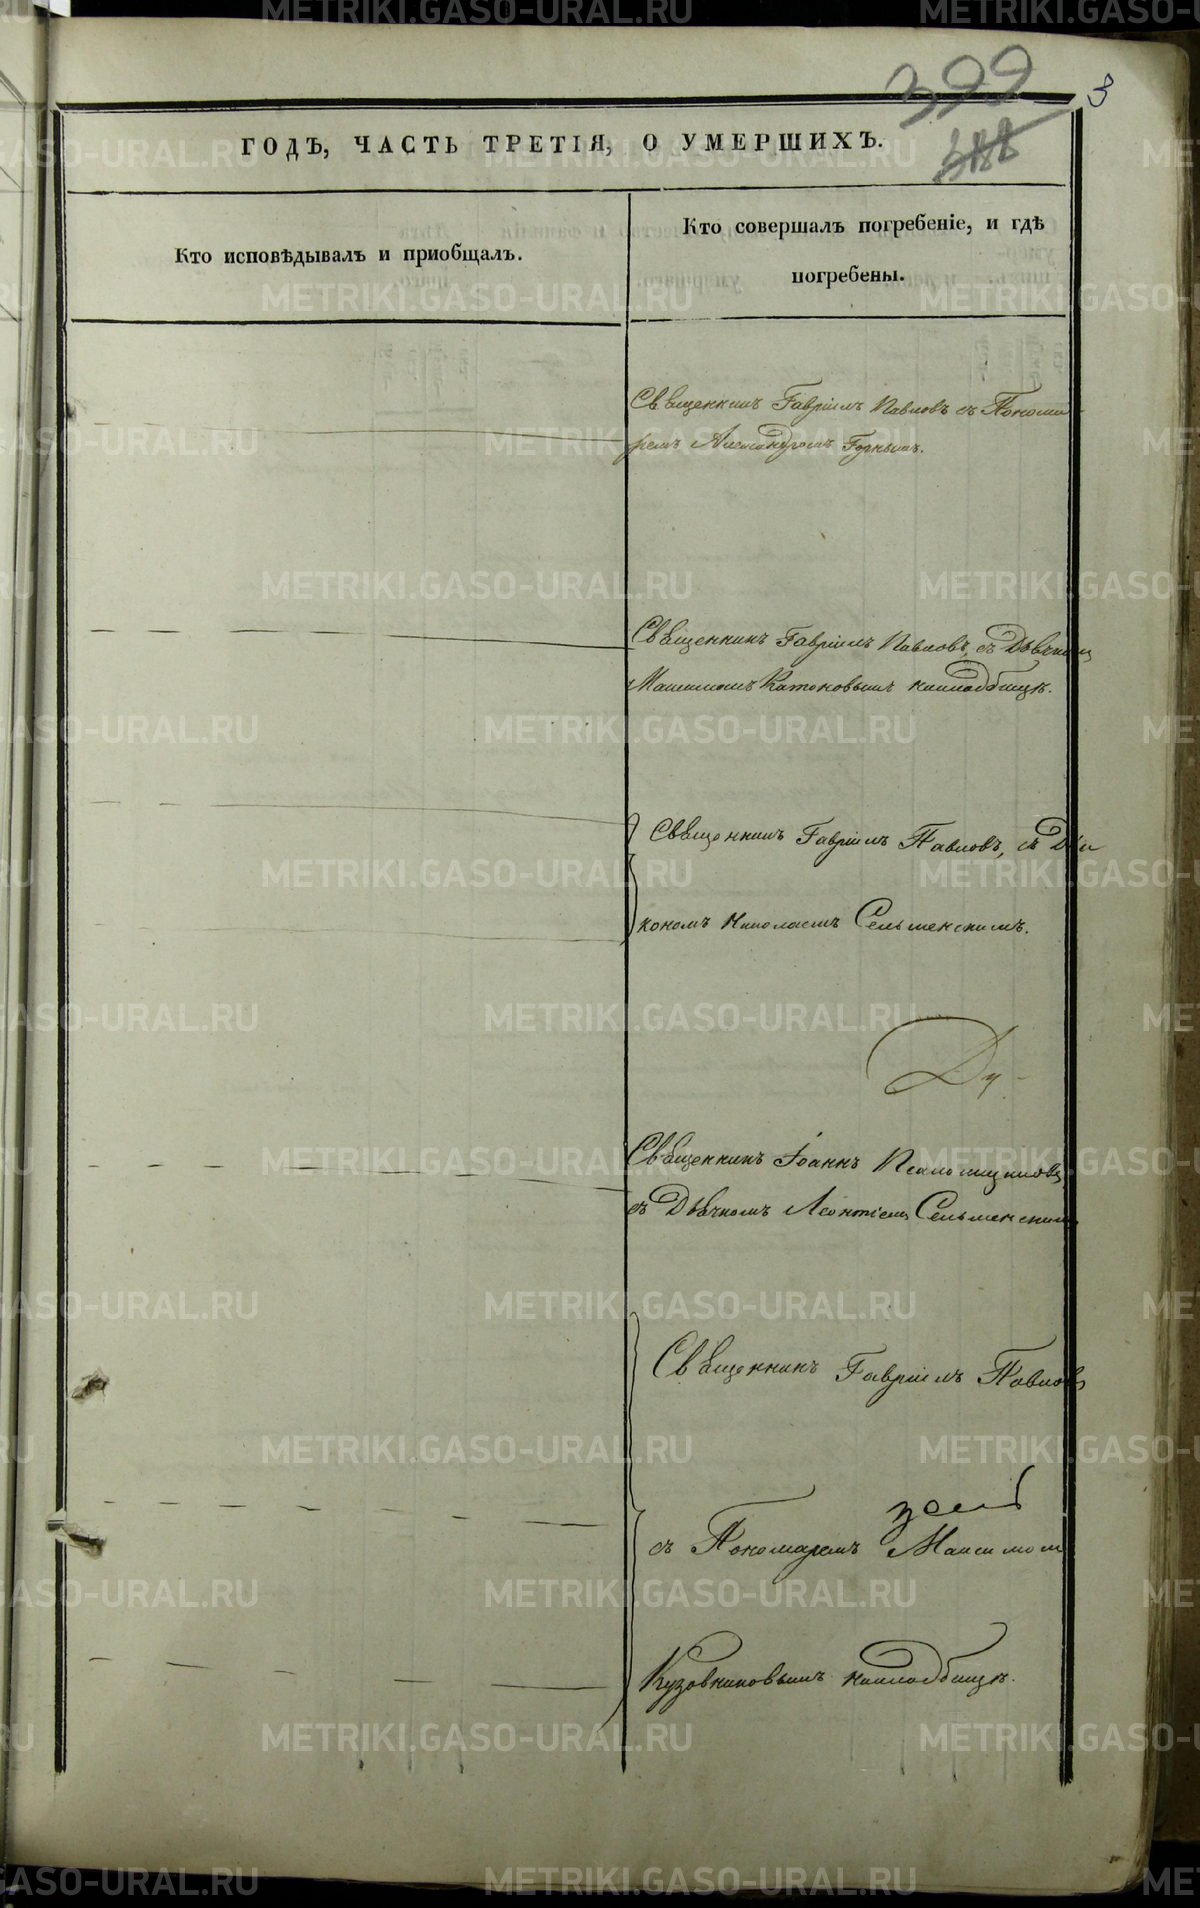 399
3
ГОДЪ, ЧАСТЬ ТРЕТІЯ, О УМЕРШИХЪ.
Кто исповѣдывалъ и приобщалъ.
Кто совершалъ погребеніе, и гдѣ
погребены.
Священникъ Гавріилъ Павловъ съ Понома
ремъ Александромъ Горнымъ.
Священникъ Гавріилъ Павловъ, съ Дьячкомъ
Максимомъ Катоновымъ накладбищѣ.
Священникъ Гавріилъ Павловъ, съ Діа
кономъ Николаемъ Сельменскимъ.
Священникъ Іоаннъ Псаломщиковъ
съ Дьячкомъ Леонтіемъ Сельменскимъ
Священникъ Гавріилъ Павловъ
съ Пономаремъ Максимом
Кузовниковымъ накладбищѣ.
METRIKI.GASO-URAL.RU